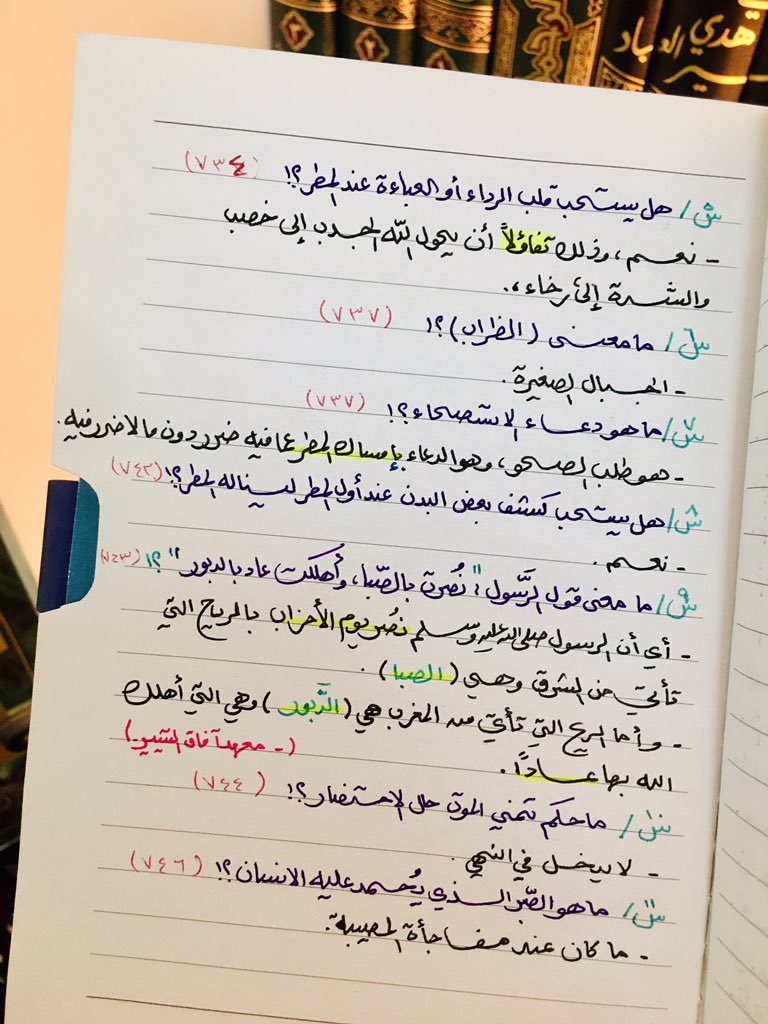 هدي العباد
س٥/ هل يستحب قلب الرداء أو العباءة عند المطر؟! (٧٣٤)
- نعم، وذلك تفاؤلاً أن يحول الله الجدب إلى خصب
والشدة إلى رخاء..
س٦/ ما معنى (الظراب)؟! (٧٣٧)
- الجبال الصغيرة.
س٧/ ما هو دعاء الاستصحاء؟! (٧٣٧)
- هو طلب الصحو، وهو الدعاء بإمساك المطر عما فيه ضرر دون ما لا ضرر فيه.
س٨/ هل يستحب كشف بعض البدن عند أول المطر ليناله المطر؟! (٧٤٢)
- نعم.
س٩/ ما معنى قول الرَّسول: "نُصرت بالصَّبا، وأُهلكت عاد بالدبور"؟! (٧٤٣)
- أي أن الرسول صلى الله عليه وسلم نُصر يوم الأحزاب بالرياح التي
تأتي من المشرق وهي (الصبا).
- وأما الريح التي تأتي من المغرب هي (الدَّبور) وهي التي أهلك
الله بها عاداً. (- معهد آفاق التيسير-)
س١٠/ ما حكم تمني الموت حال الاحتضار؟! (٧٤٤)
- لا يدخل في النهي.
س١١/ ما هو الصَّبر الذي يُحمد عليه الانسان؟! (٧٤٦)
- ما كان عند مفاجأة المصيبة.